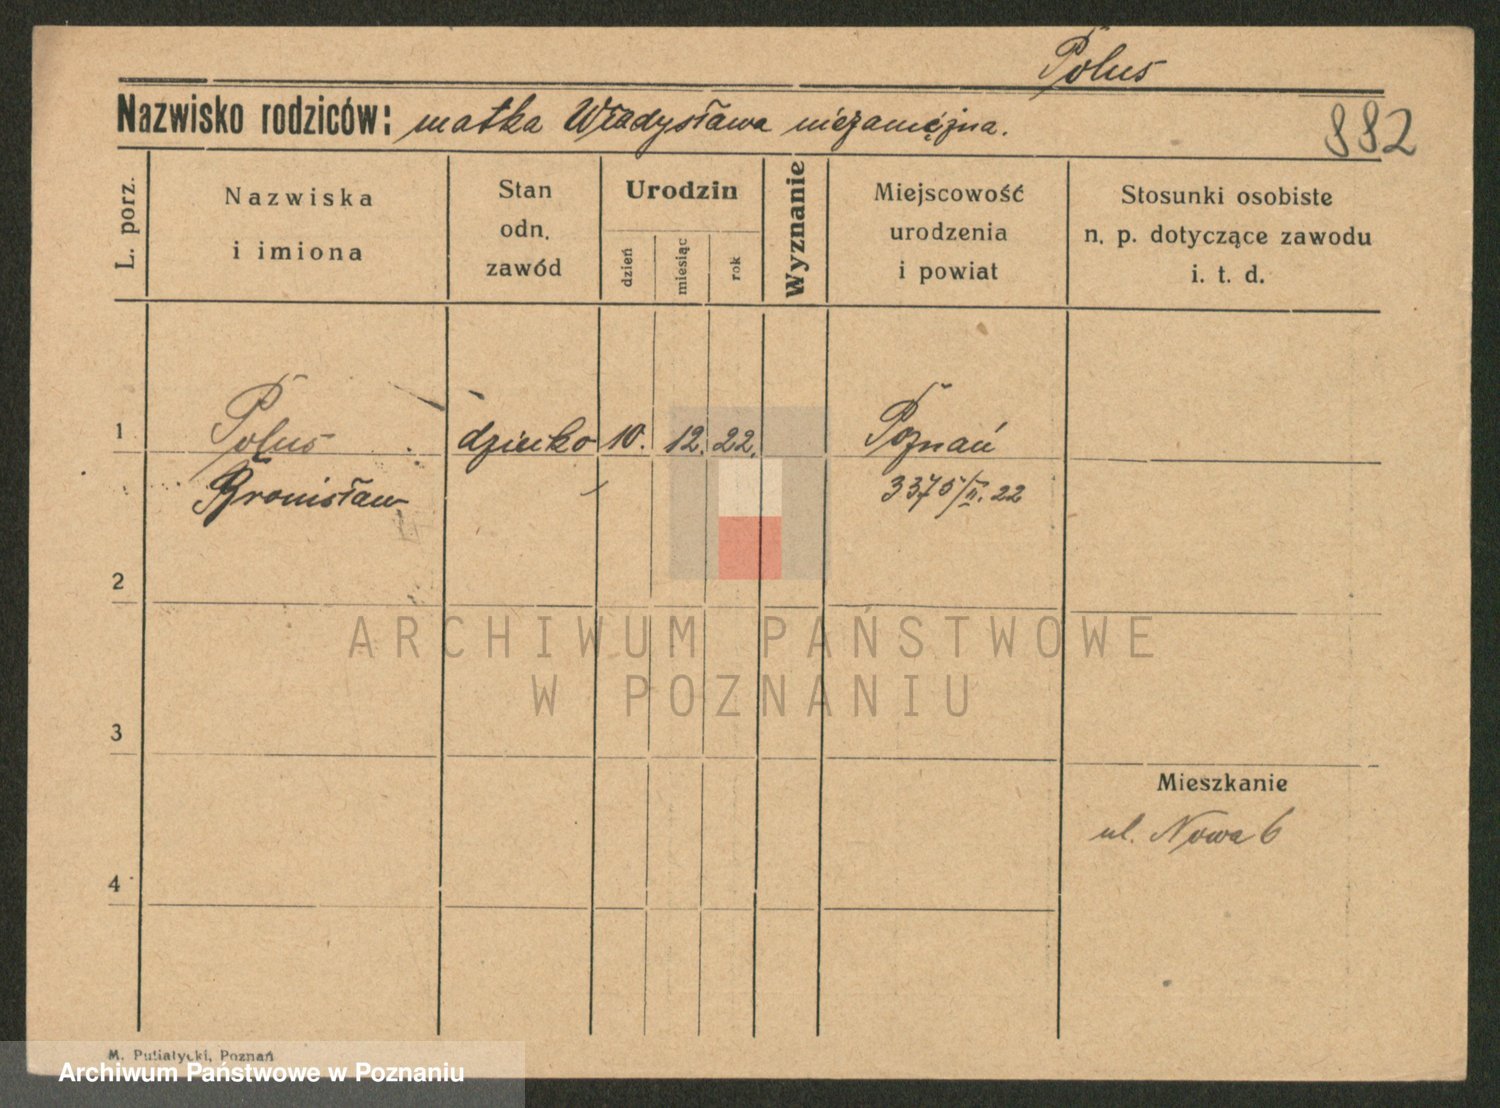 Polus
Nazwisko rodziców: matka Władysława niezamężna.
882
L. porz.
Nazwiska
i imiona
Stan
odn.
zawód
Urodzin
dzień
miesiąc
rok
Wyznanie
Miejscowość
urodzenia
i powiat
Stosunki osobiste
n. p. dotyczące zawodu
i. t. d.
1 Polus dziecko 10. 12. 22. Poznań
Bronisław 3375/II. 22
2
ARCHIWUM PAŃSTWOWE
W POZNANIU
3
Mieszkanie
ul. Nowa 6
4
M. Putiatycki, Poznań
Archiwum Państwowe w Poznaniu